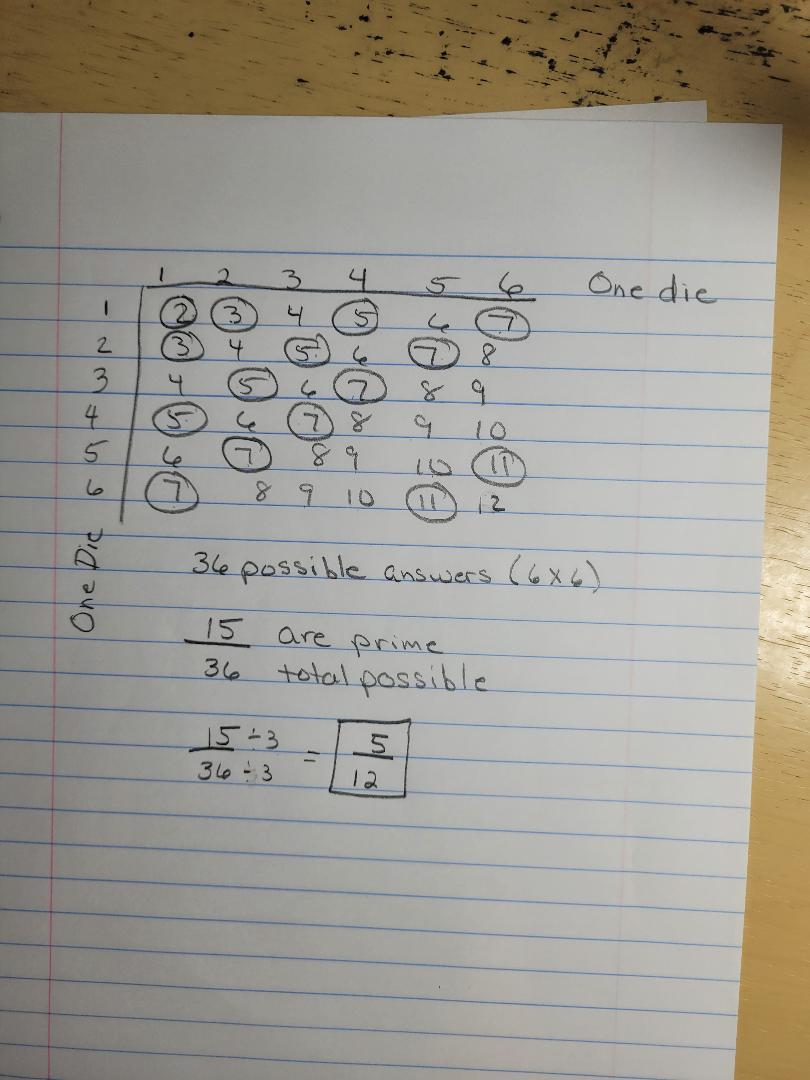 1 2 3 4 5 6 One die
1 2 3 4 5 6 7
2 3 4 5 6 7 8
3 4 5 6 7 8 9
4 5 6 7 8 9 10
5 6 7 8 9 10 11
6 7 8 9 10 11 12
One Die
36 possible answers (6x6)
15 are prime
36 total possible
15 ÷ 3 = 5
36 ÷ 3 12